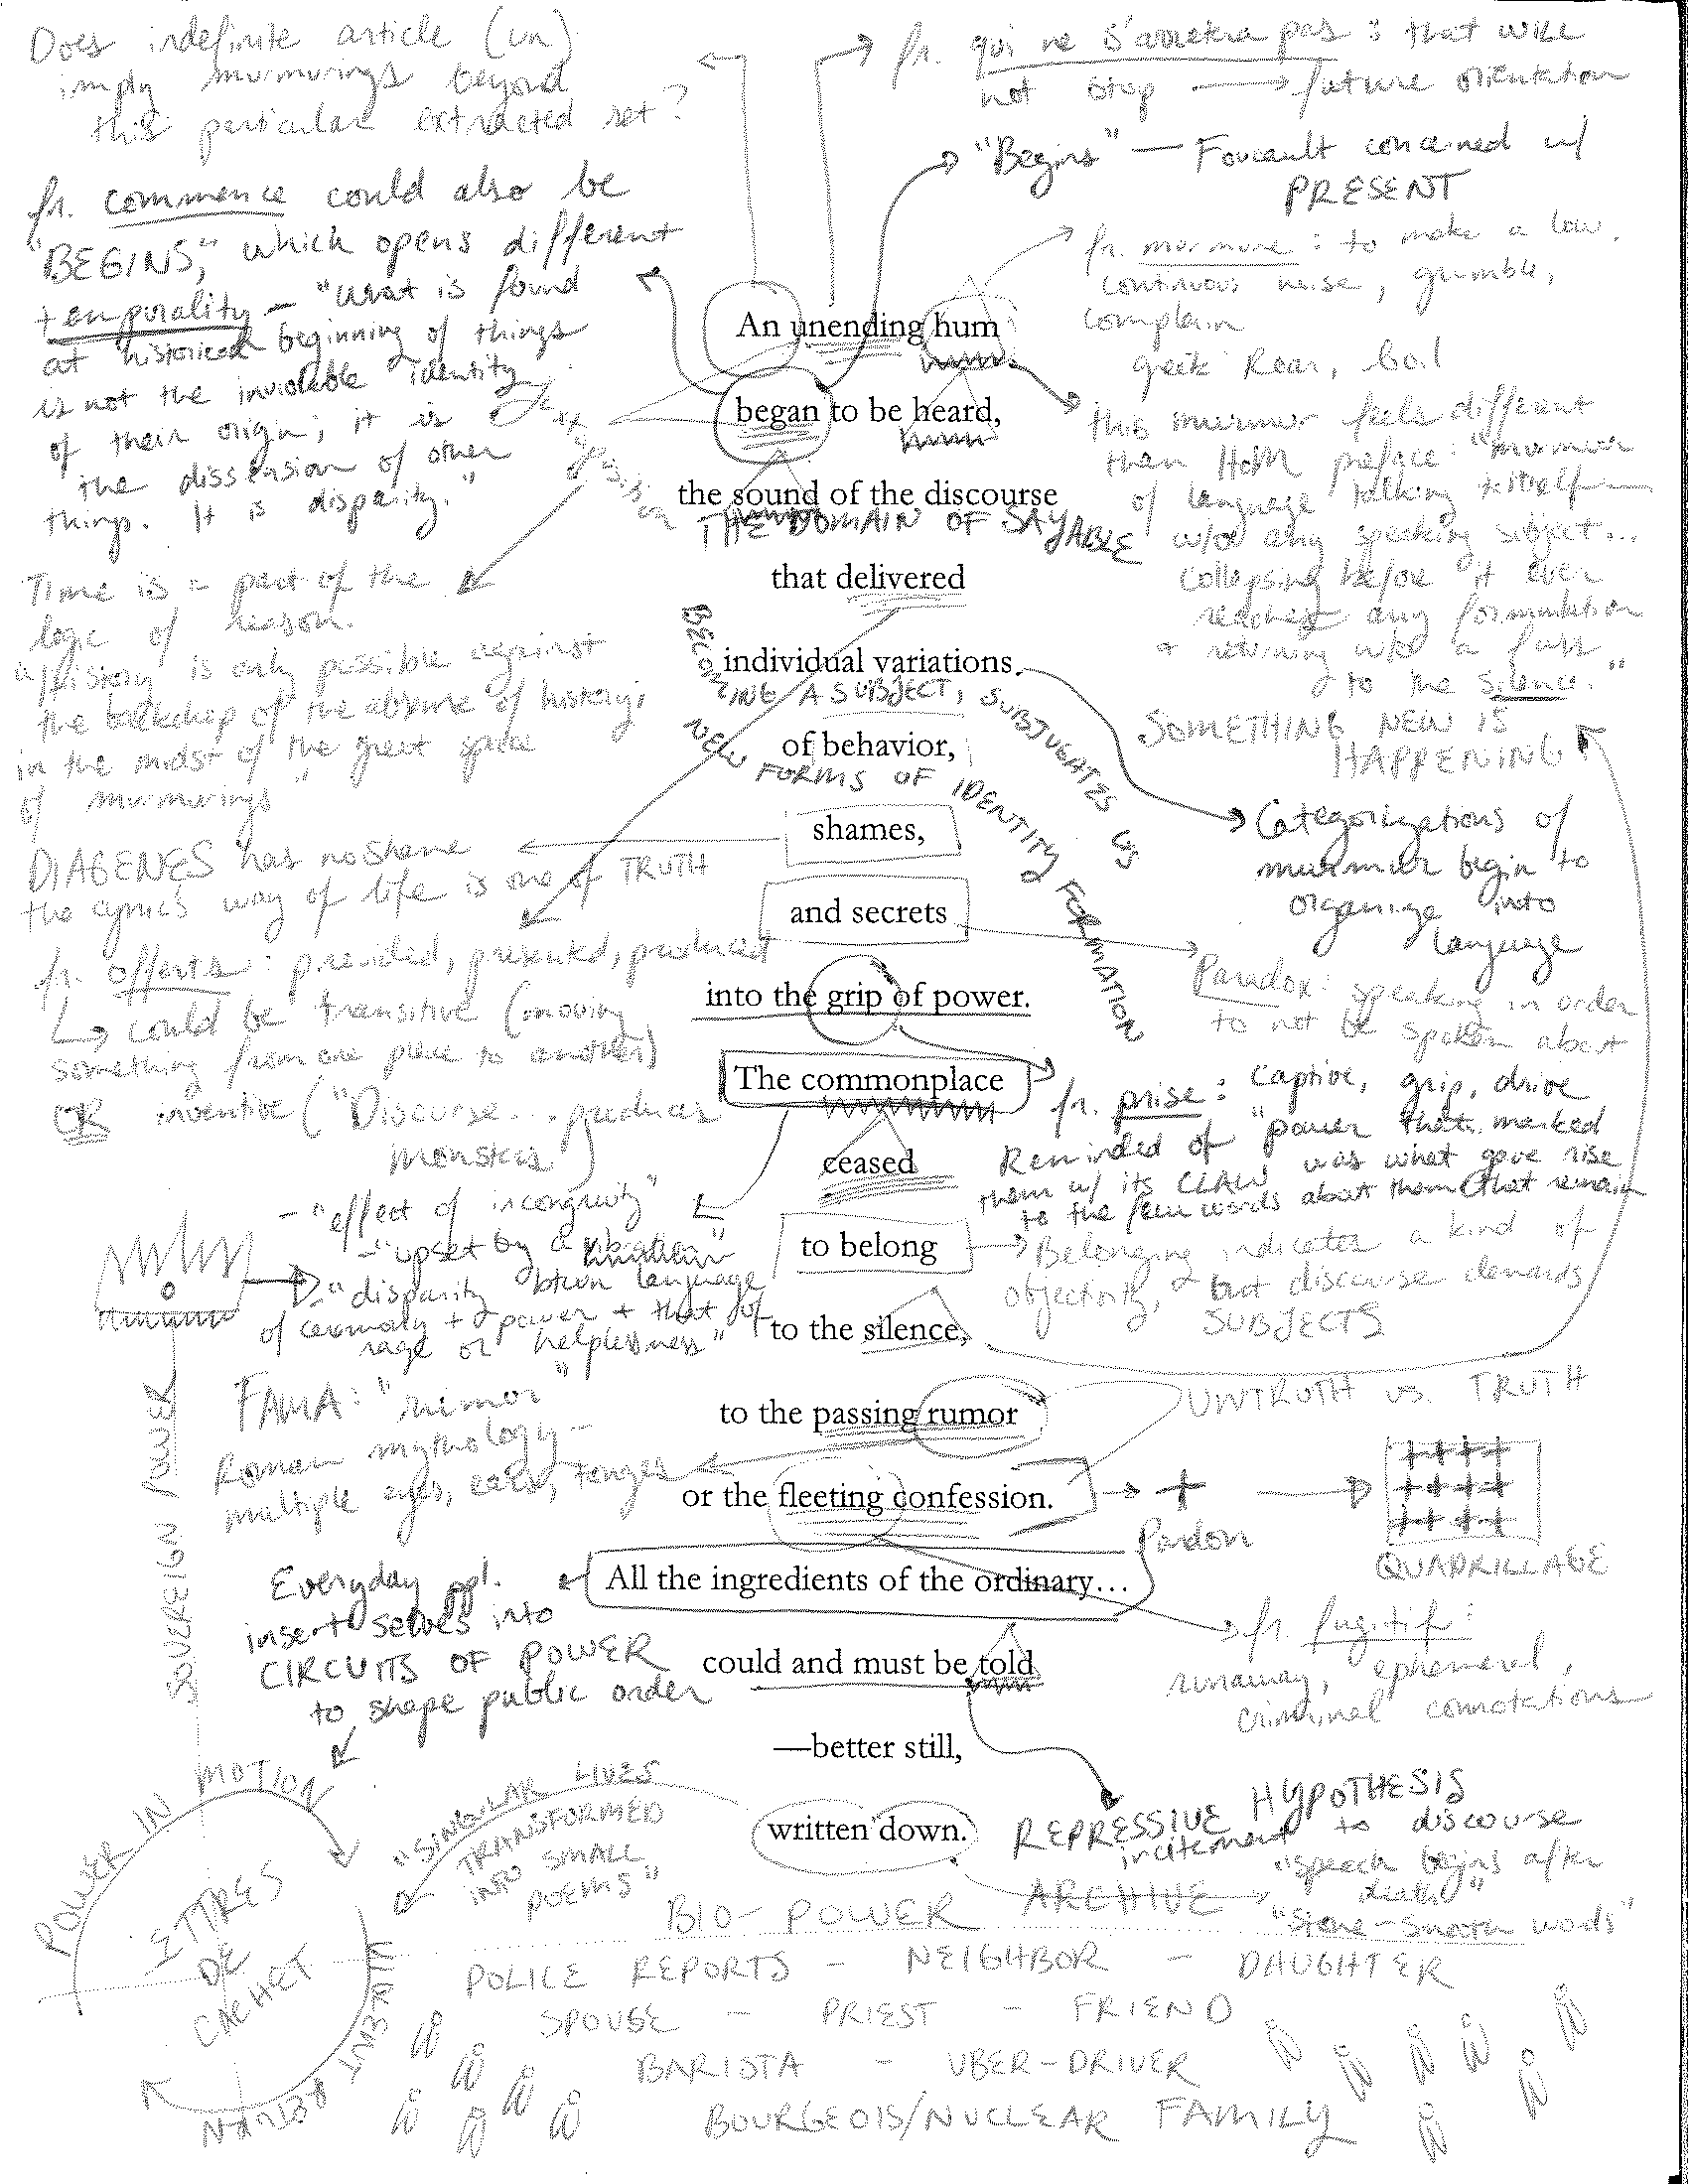 Does indefinite article (un)
imply murmurings beyond
this particular extracted set?
fr. commence could also be
"BEGINS," which opens different
temporality — "what is found
at historical beginning of things
is not the inviolable identity
of their origin; it is
the dissension of other
things. It is disparity."
Time is a part of the
logic of reason.
"History is only possible against
the backdrop of the absence of history,
in the midst of the great space
of murmurings"
DIAGENES has no shame
the cynic's way of life is one of TRUTH
fr. offerts: provided, presented, produced
↳ could be transitive (moving
something from one place to another)
OR inventive ("Discourse... produces
monsters")
- "effect of incongruity"
- "upset by a vibration"
- "disparity btwn language
of ceremony + power + that of
rage or helplessness"
SOVEREIGN POWER
FAMA: "rumor"
Roman mythology -
multiple eyes, ears, tonges
Everyday ppl.
insert selves into
CIRCUITS OF POWER
to shape public order
POWER IN MOTION
LETTRES
DE
CACHET
IMMANENT RETURN
"SINGULAR LIVES
TRANSFORMED
INTO SMALL
POEMS"
An unending hum
began to be heard,
the sound of the discourse
THE DOMAIN OF SAYABLE
that delivered
individual variations
BECOMING A SUBJECT, SUBJUGATES US
of behavior,
NEW FORMS OF IDENTITY FORMATION
shames,
and secrets
into the grip of power.
The commonplace
ceased
to belong
to the silence,
to the passing rumor
or the fleeting confession.
All the ingredients of the ordinary…
could and must be told
—better still,
written down.
fr. qui ne s'arretera pas : that will
not stop → future orientation
"Begins" — Foucault concerned w/
PRESENT
fr. murmure : to make a low,
continuous noise, grumble,
complain
greek Roar, boil
this murmur feels different
than HoM preface: "murmur
of language talking to itself—
w/o any speaking subject...
collapsing before it ever
reaches any formulation
+ returning w/o a fuss
to the silence."
SOMETHING NEW IS
HAPPENING
Categorizations of
murmur begin to
organize into
language
Paradox: speaking in order
to not be spoken about
fr. prise : captive, grip, drive
Reminded of "power that marked
them w/ its CLAW was what gave rise
to the few words about them that remain
Belonging indicates a kind of
objectivity, but discourse demands
SUBJECTS
UNTRUTH vs. TRUTH
Pardon
QUADRILLAGE
fr. fugitif :
runaway, ephemeral,
criminal connotations
REPRESSIVE HYPOTHESIS
incitement to discourse
"speech begins after
death"
ARCHIVE
"stone-smooth words"
BIO-POWER
POLICE REPORTS - NEIGHBOR - DAUGHTER
SPOUSE - PRIEST - FRIEND
BARISTA - UBER-DRIVER
BOURGEOIS/NUCLEAR FAMILY